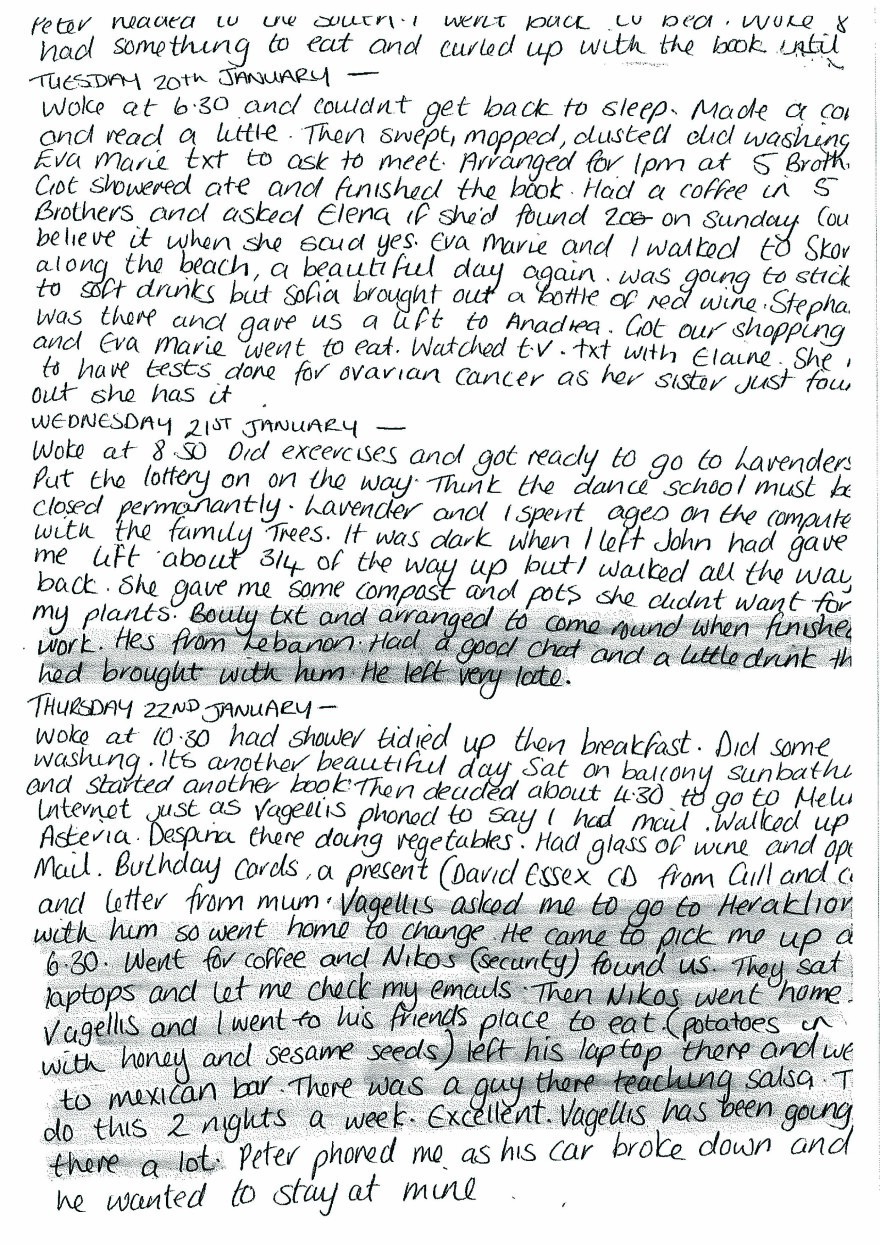 Peter headed to the south. I went back to bed. Woke 8
had something to eat and curled up with the book until
TUESDAY 20th JANUARY —
Woke at 6.30 and couldnt get back to sleep. Made a
and read a little. Then swept, mopped, dusted did washing
Eva Marie txt to ask to meet. Arranged for 1pm at 5 Broth
Got showered ate and finished the book. Had a coffee in 5
Brothers and asked Elena if she'd found 20€ on Sunday Cou
believe it when she said yes. Eva Marie and I walked to Skor
along the beach, a beautiful day again. was going to stick
to soft drinks but Sofia brought out a bottle of red wine. Stepha
was there and gave us a lift to Anadrea. Got our shopping
and Eva Marie went to eat. Watched t.v. txt with Elaine. She
to have tests done for ovarian cancer as her sister just fou
out she has it
WEDNESDAY 21ST JANUARY —
Woke at 8.50 Did excercises and got ready to go to Lavenders
Put the lottery on on the way. Think the dance school must be
closed permanantly. Lavender and I spent ages on the compute
with the family Trees. It was dark when I left John had gave
me lift about 3/4 of the way up but I walked all the way
back. She gave me some compost and pots she didnt want for
my plants. Bouly txt and arranged to come round when finishe
work. Hes from Lebanon. Had a good chat and a little drink th
hed brought with him. He left very late.
THURSDAY 22ND JANUARY —
Woke at 10.30 had shower tidied up then breakfast. Did some
washing. Its another beautiful day Sat on balcony sunbathi
and started another book. Then decided about 4.30 to go to Melu
Internet just as Vagellis phoned to say I had mail. Walked up
Asteria. Despina there doing vegetables. Had glass of wine and ope
Mail. Birthday Cards, a present (David Essex CD from Gill and
and letter from mum. Vagellis asked me to go to Heraklion
with him so went home to change. He came to pick me up a
6.30. Went for coffee and Nikos (security) found us. They sat
laptops and let me check my emails. Then Nikos went home.
Vagellis and I went to his friends place to eat (potatoes
with honey and sesame seeds) left his laptop there and we
to mexican bar. There was a guy there teaching salsa. T
do this 2 nights a week. Excellent. Vagellis has been going
there a lot. Peter phoned me as his car broke down and
he wanted to stay at mine